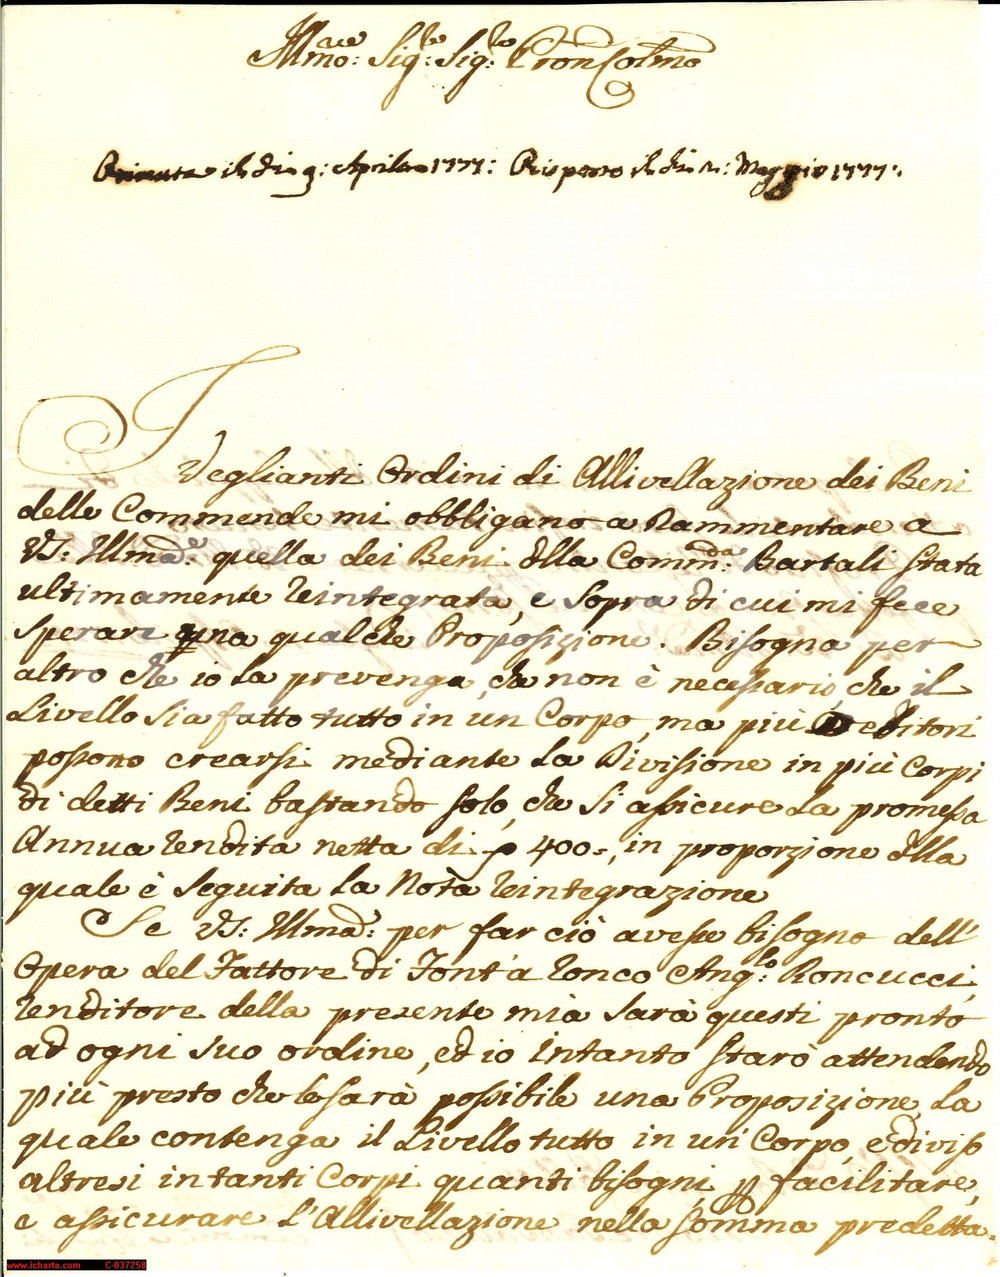 Illmo: Sig:re Sig:re Pron Colmo
il dì 9: Aprile 1777: Risposto il dì Maggio 1777:
I Veglianti Ordini di Allivellazione dei Beni
delle Commende mi obbligano a Rammentare a
VS: Illma: quella dei Beni della Comm:da Bartali stata
ultimamente reintegrata, e sopra di cui mi fece
sperare una qualche Proposizione. Bisogna per
altro che io la prevenga, che non è necessario, che il
Livello sia fatto tutto in un Corpo, ma più Debitori
possono crearsi mediante la Divisione in più Corpi
di detti Beni bastando solo, che si assicure la promessa
Annua rendita netta di 400-, in proporzione della
quale è seguita la Nota reintegrazione
Se VS: Illma: per far ciò avesse bisogno dell'
Opera del Fattore di Font'a ronco Ang:lo Roncucci,
renditore della presente mia sarà questi pronto
ad ogni suo ordine, ed io intanto starò attendendo
più presto che le sarà possibile una Proposizione, la
quale contenga il Livello tutto in un' Corpo, e diviso
altresi in tanti Corpi quanti bisogni p facilitare,
e assicurare l'Allivellazione nella somma predetta.
www.icharta.com C-037258